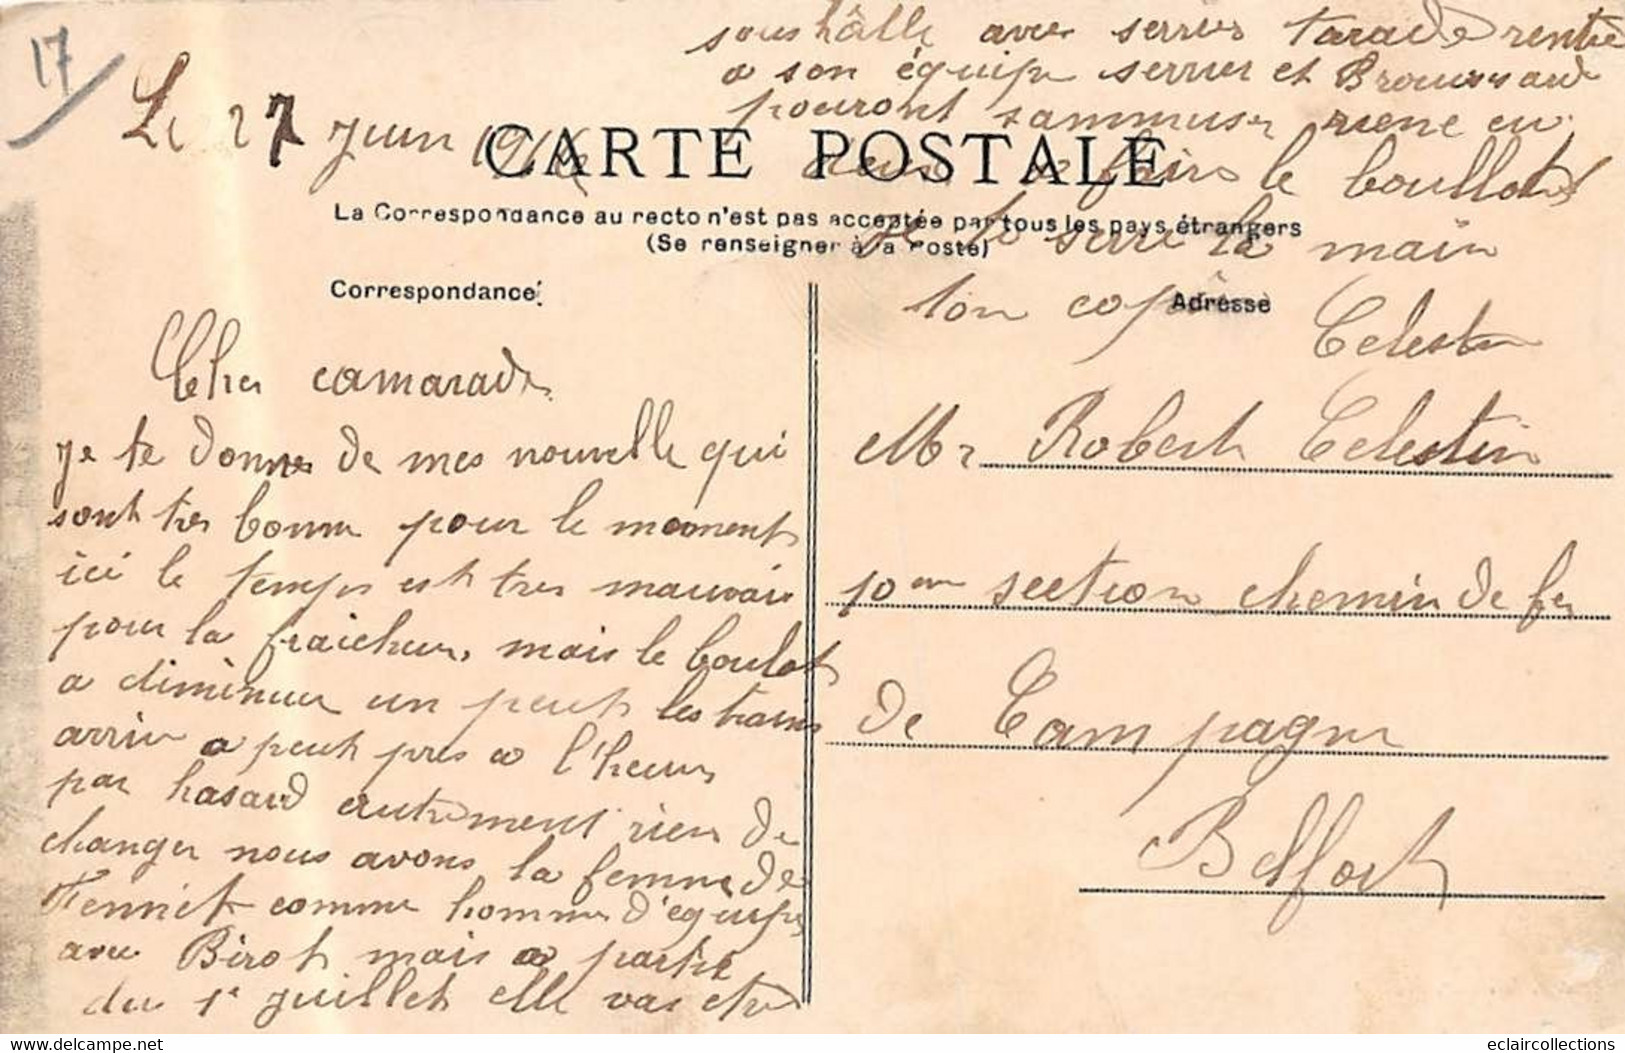 17
Le 27 Juin 191
CARTE POSTALE
La Correspondance au recto n'est pas acceptée par tous les pays étrangers
(Se renseigner à la Poste)
Correspondance
Adresse
Cher camarade
je te donne de mes nouvelle qui
sont tres bonne pour le moment
ici le temps est tres mauvais
pour la fraicheur, mais le boulot
a diminuer un peut les trains
arrive a peut pres a l'heure
par hasard autrement rien de
changer nous avons la femme de
Fennet comme homme d'équipe
avec Birot mais a partir
du 1r juillet elle vas etre
sous hâlle avec serrier Tarade rentre
a son équipe serrier et Broussard
pouront sammuser
faire le boullot
je te serre la main
ton
Celestin
Mr Robert Celestin
10me section chemin de fer
de Campagne
Belfort
https://www.delcampe.net
eclaircollections